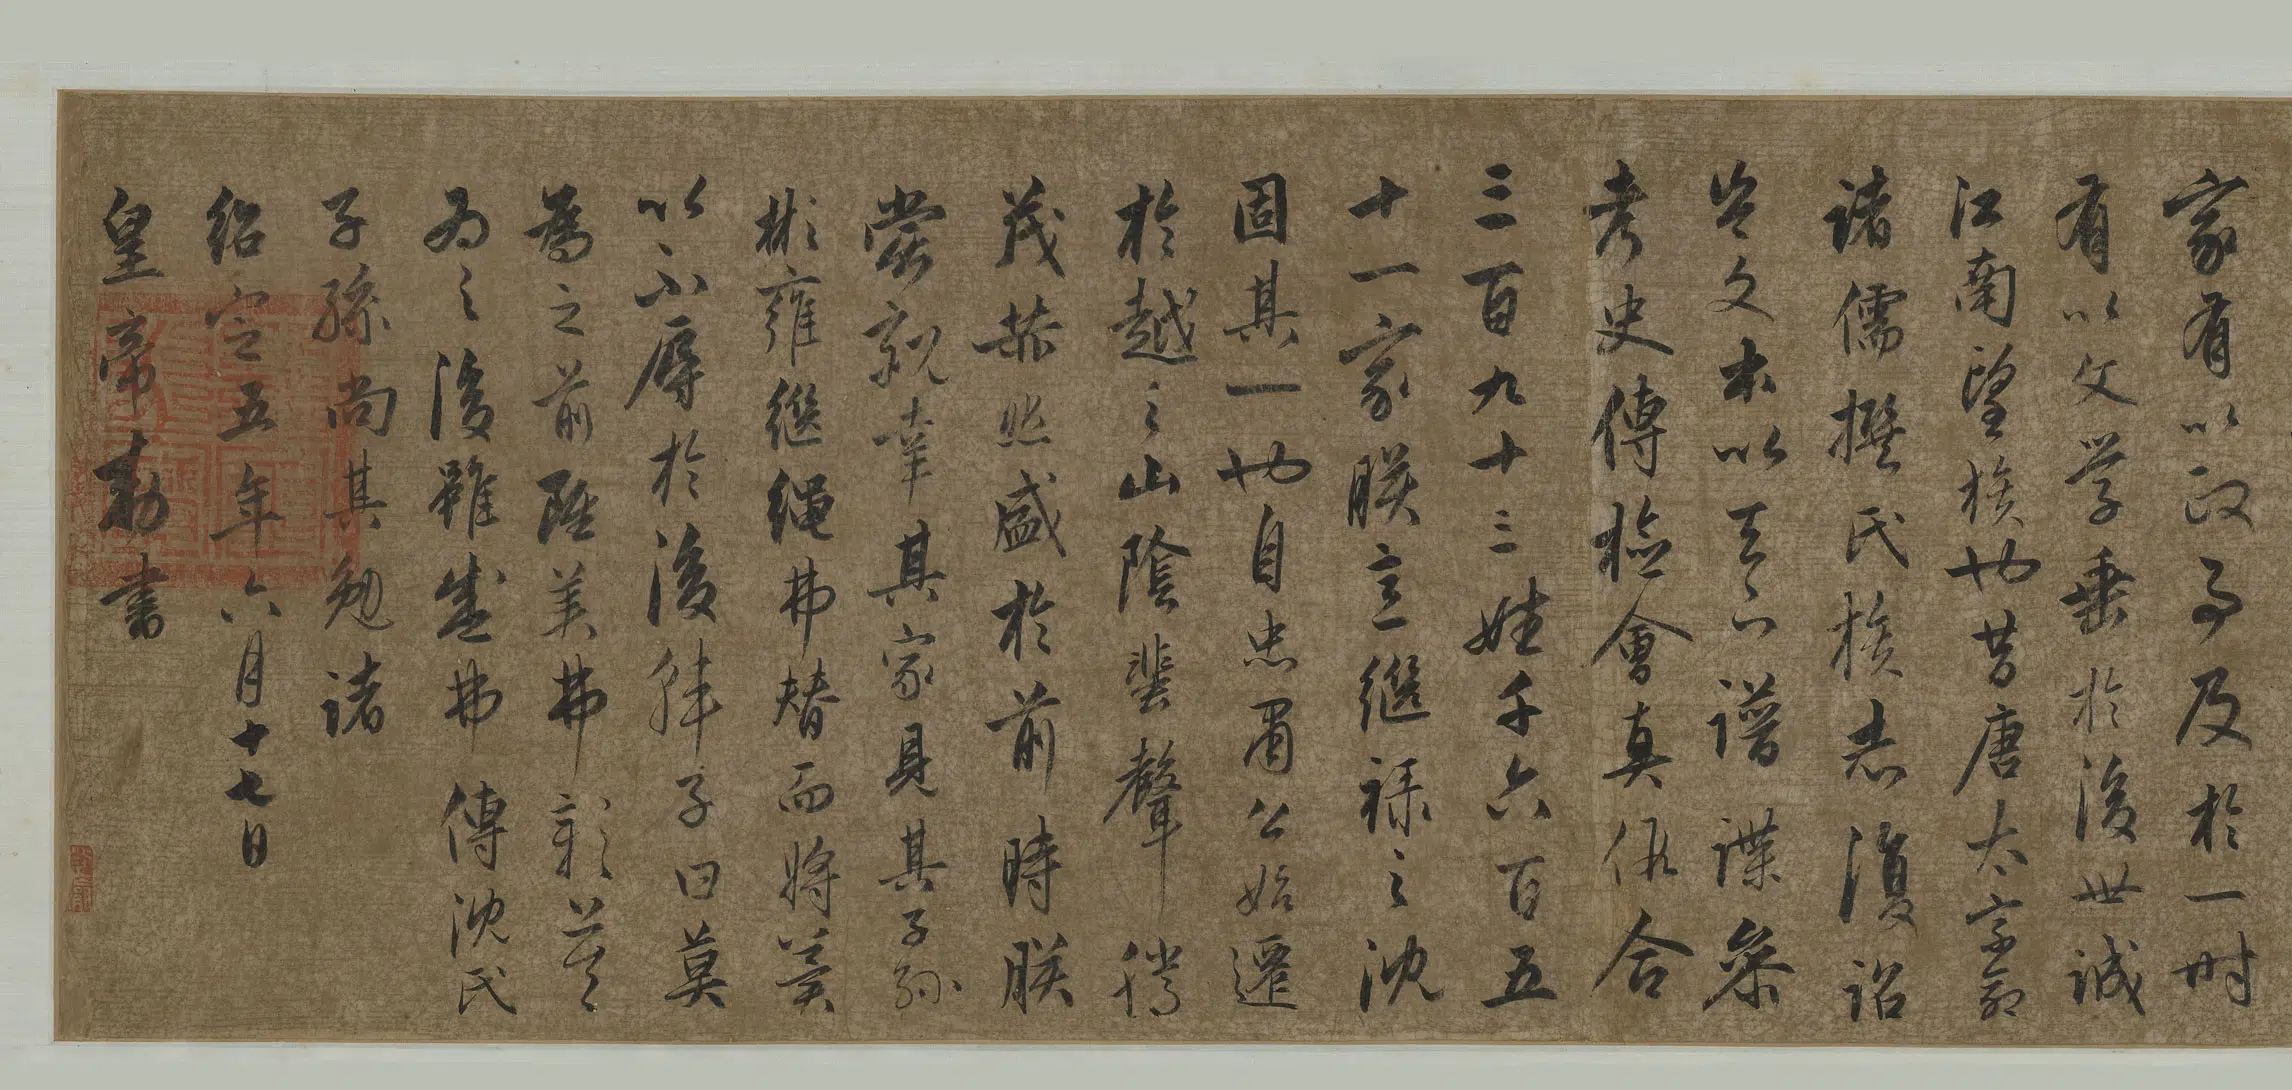 家有以政事及於一時
有以文學垂於後世誠
江南望族也昔唐太宗命
諸儒撰氏族志復詔
岑文本以天下譜諜參
考史傳檢會真偽合
三百九十三姓千六百五
十一家朕言繼祿之沈
固其一也自忠肅公始遷
於越之山陰蜚聲騰
茂赫然盛於前時朕
嘗親幸其家見其子孫
彬雍繼繩弗替而將冀
以不辱於後牒子曰莫
為之前雖美弗彰莫
為之後雖盛弗傳沈氏
子孫尚其勉諸
紹定五年六月十七日
皇帝勅書